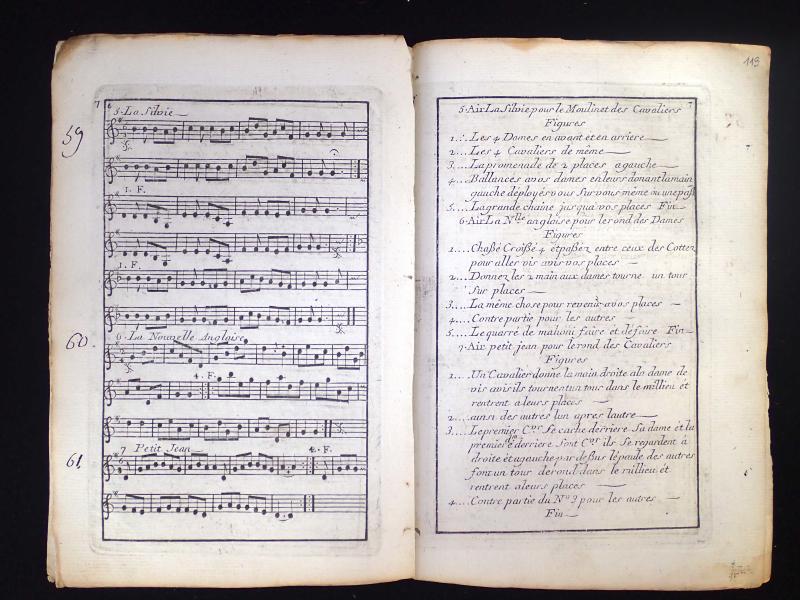 7
6
5. La Silvie
59
1. F.
1. F.
60.
6. La Nouvelle Anglaise
4. F.
61.
7 Petit Jean
2. F.
113
7
5. Air La Silvie pour le Moulinet des Cavaliers
Figures
1.... Les 4 Dames en avant et en arriere
2.... Les 4 Cavaliers de même
3.... La promenade de 2 places a gauche
4.... Ballances a vos dames en leurs donant la main
gauche déployés vous Sur vous même ou une pass
5.... La grande chaine jusqu'a vos places Fin
6. Air La Nlle anglaise pour le rond des Dames
Figures
1.... Chaßé Croißé 4 et paßez entre ceux des Cottez
pour aller vis avis vos places
2.... Donnez les 2 main aux dames tourne un tour
Sur places
3.... La même chose pour revenir a vos places
4.... Contre partie pour les autres
5.... Le quarré de mahoni faire et défaire Fin
7. Air petit jean pour le rond des Cavaliers
Figures
1.... Un Cavalier donne la main droite a la dame de
vis avis ils tournent un tour dans le millieu et
rentrent a leurs places
2.... ainsi des autres lun apres lautre
3.... Le premier Cer Se cache derriere Sa dame et la
premiere de derriere Sont Cer ils Se regardent à
droite et a gauche par deßus lépaule des autres
font un tour de rond dans le millieu et
rentrent a leurs places
4.... Contre partie du No 3 pour les autres
Fin